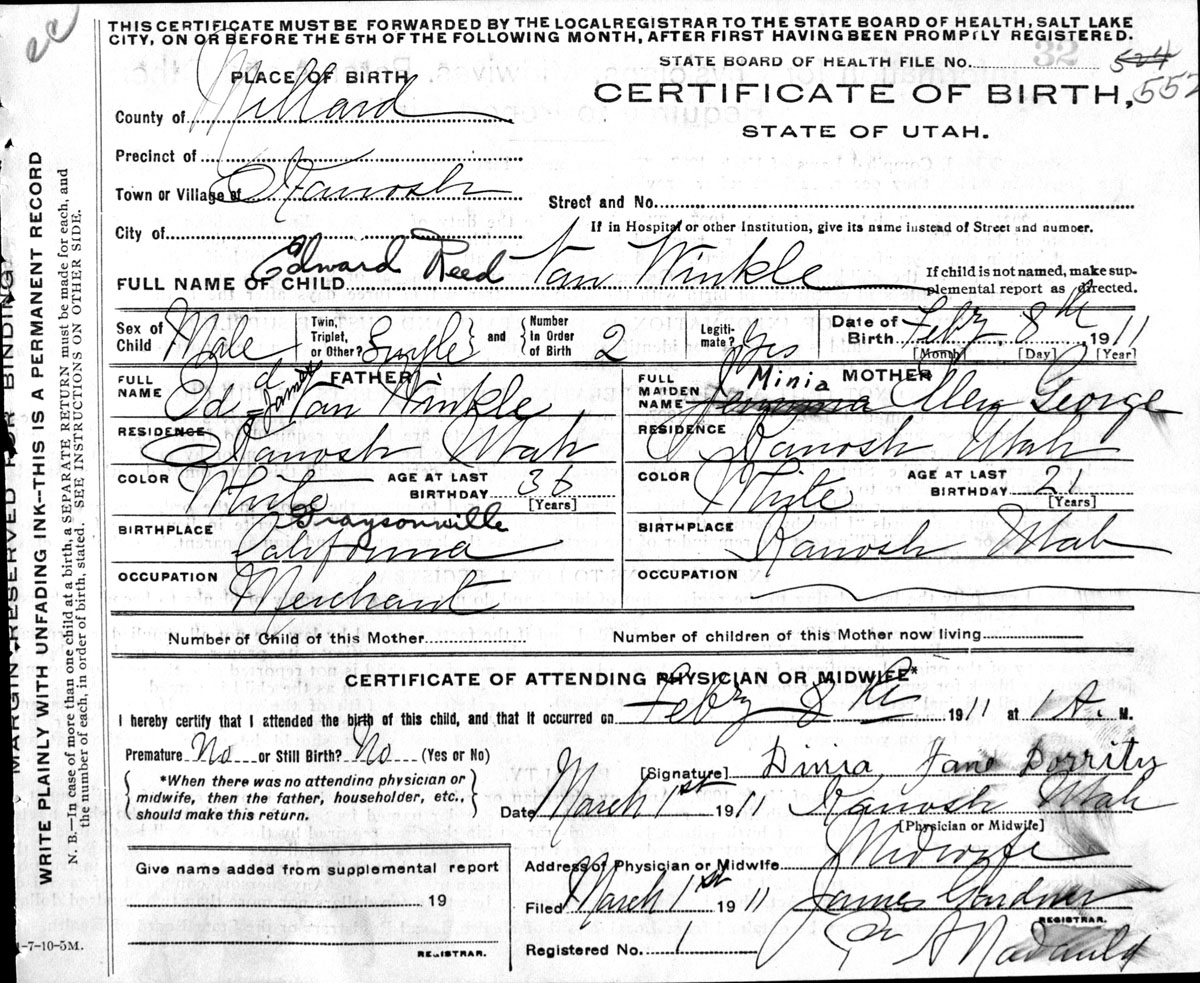 ec
THIS CERTIFICATE MUST BE FORWARDED BY THE LOCAL REGISTRAR TO THE STATE BOARD OF HEALTH, SALT LAKE
CITY, ON OR BEFORE THE 5TH OF THE FOLLOWING MONTH, AFTER FIRST HAVING BEEN PROMPTLY REGISTERED.
STATE BOARD OF HEALTH FILE No. 32 524
PLACE OF BIRTH
CERTIFICATE OF BIRTH, 552
County of Millard
STATE OF UTAH.
Precinct of
Town or Village of Kanosh
Street and No.
City of
If in Hospital or other Institution, give its name instead of Street and number.
FULL NAME OF CHILD Edward Reed Van Winkle
If child is not named, make sup-
plemental report as directed.
Sex of Child Male Twin, Triplet, or Other? Single and Number In Order of Birth 2 Legiti-mate? Yes Date of Birth Feby, 8th, 1911
[Month] [Day] [Year]
FULL NAME FATHER Ed James Van Winkle
FULL MAIDEN NAME MOTHER Minia Ellen George
RESIDENCE Kanosh Utah
RESIDENCE Kanosh Utah
COLOR White AGE AT LAST BIRTHDAY 36 [Years]
COLOR White AGE AT LAST BIRTHDAY 2 [Years]
BIRTHPLACE Graysonville
California
BIRTHPLACE Kanosh Utah
OCCUPATION Merchant
OCCUPATION
Number of Child of this Mother Number of children of this Mother now living
CERTIFICATE OF ATTENDING PHYSICIAN OR MIDWIFE*
I hereby certify that I attended the birth of this child, and that it occurred on Feby 8th 1911 at 1 A. M.
Premature No or Still Birth? No (Yes or No)
*When there was no attending physician or
midwife, then the father, householder, etc.,
should make this return.
[Signature] Dinia Jane Dorrity
Date March 1st 1911 Kanosh Utah
[Physician or Midwife]
Address of Physician or Midwife Midwife
Give name added from supplemental report
19
REGISTRAR.
Filed March 1st 1911 James Gardner
REGISTRAR.
Registered No. 1
MARGIN RESERVED FOR BINDING
WRITE PLAINLY WITH UNFADING INK--THIS IS A PERMANENT RECORD
N. B.—In case of more than one child at a birth, a SEPARATE RETURN must be made for each, and
the number of each, in order of birth, stated. SEE INSTRUCTIONS ON OTHER SIDE.
1-7-10-5M.